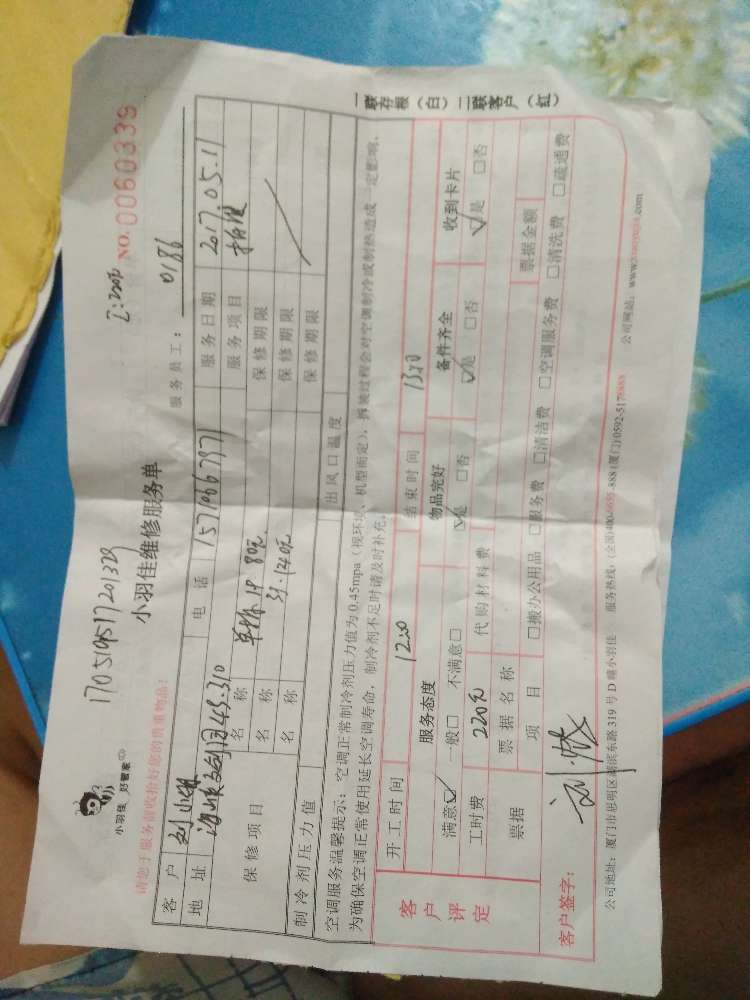 小羽佳 好管家
小羽佳维修服务单
NO.0060339
请您于服务前收拾好您的贵重物品！
服务员工： 0186
客户 电话 15710667971 服务日期 2017.05.11
地址 服务项目
保修项目 名称 保修期限
名称 保修期限
名称 保修期限
制冷剂压力值 出风口温度
空调服务温馨提示：空调正常制冷剂压力值为0.45mpa（视环境、机型而定），拆装过程会对空调制冷或制热造成一定影响，
为确保空调正常使用延长空调寿命，制冷剂不足时请及时补充。
一联存根（白）二联客户（红）
客户评定
开工时间 结束时间
服务态度 物品完好 备件齐全 收到卡片
满意☑ 一般□ 不满意□ ☑是 □否 ☑是 □否 ☑是 □否
工时费 220元 代购材料费
票据 票据名称 票据金额
项目 □搬办公用品 □服务费 □清洁费 □空调服务费 □清洗费 □疏通费
客户签字：
公司地址：厦门市思明区湖滨东路319号D幢小羽佳 服务热线：(厦门)0592-5178888 公司网站：